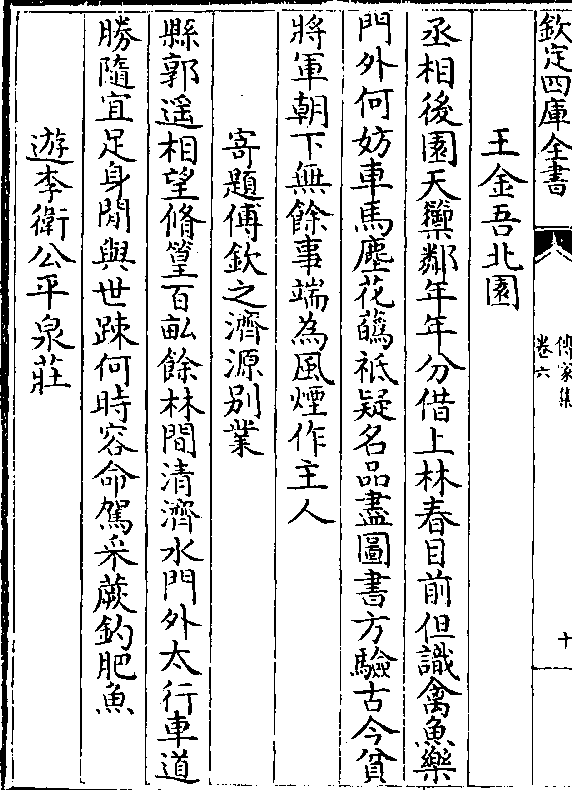 欽定四庫全書
傳家集
卷六
十
王金吾北園
丞相後園天籞鄰年年分借上林春目前但識禽魚樂
門外何妨車馬塵花蘤祗疑名品盡圖書方驗古今貧
將軍朝下無餘事端為風煙作主人
寄題傅欽之濟源别業
縣郭遥相望脩篁百畝餘林間清濟水門外太行車道
勝隨宜足身閒與世踈何時容命駕采蕨釣肥魚
遊李衛公平泉莊